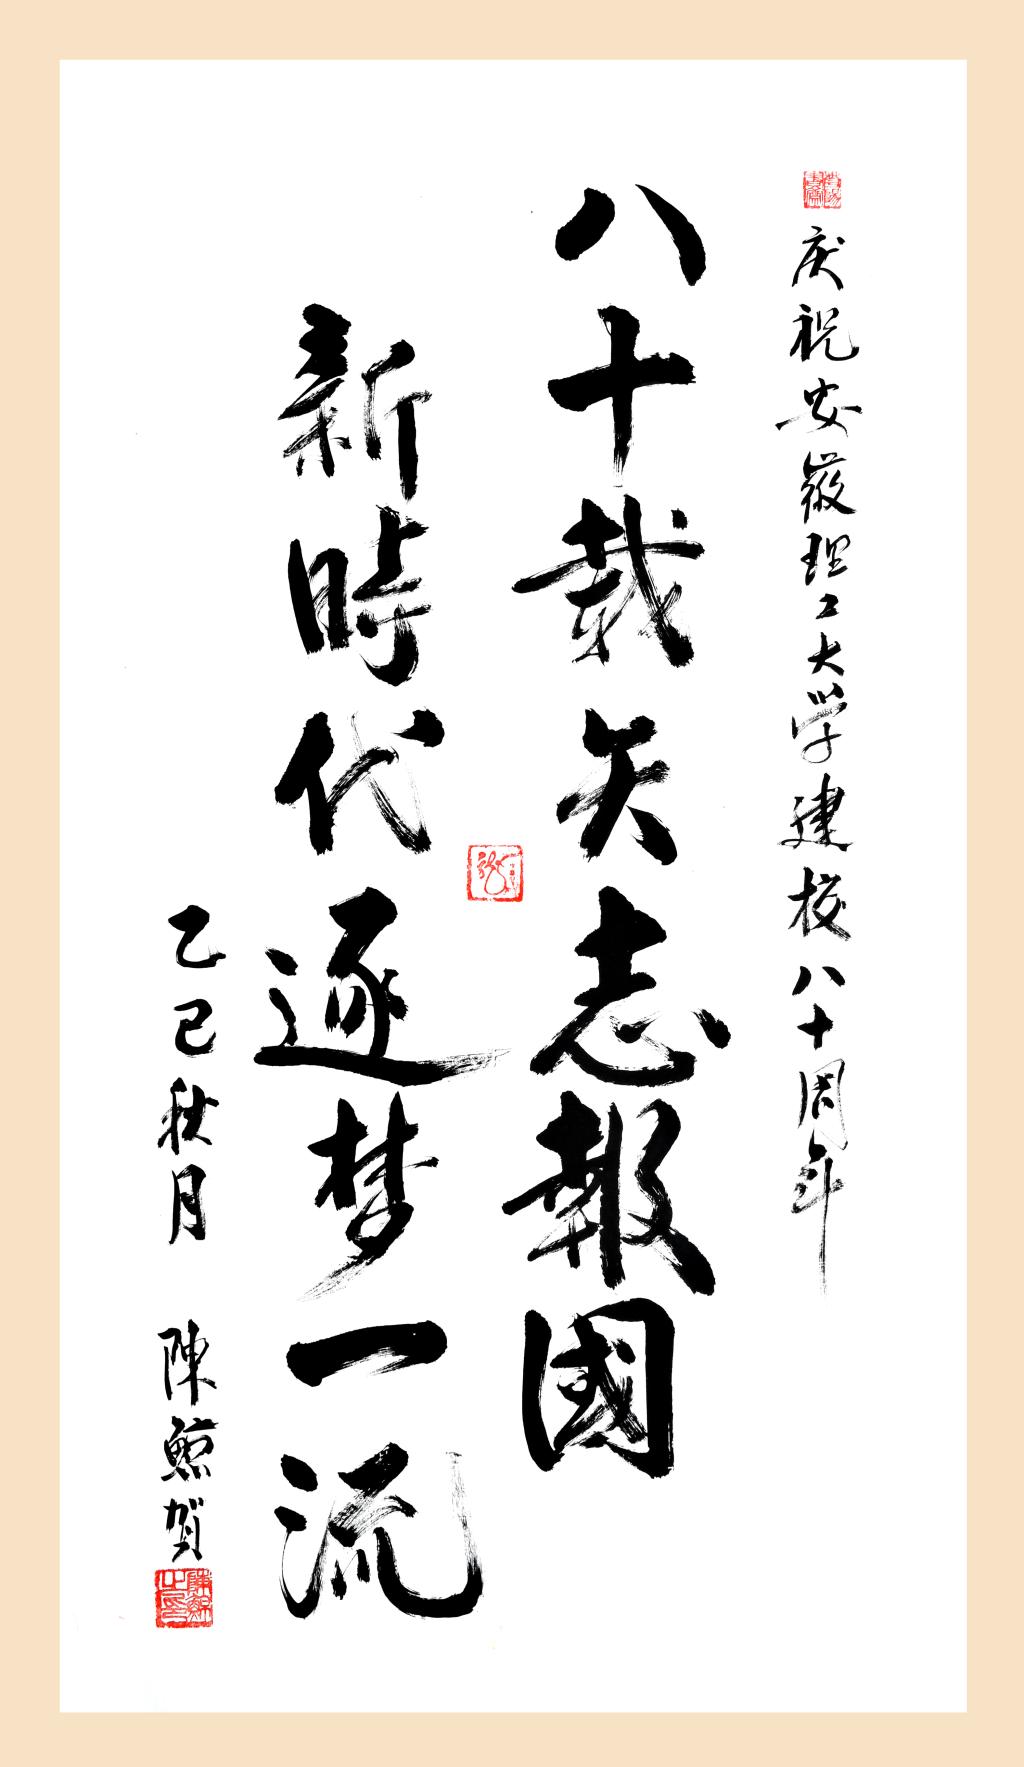 庆祝安徽理工大学建校八十周年
八十载矢志報國
新時代逐梦一流
乙巳秋月 陳鯨賀